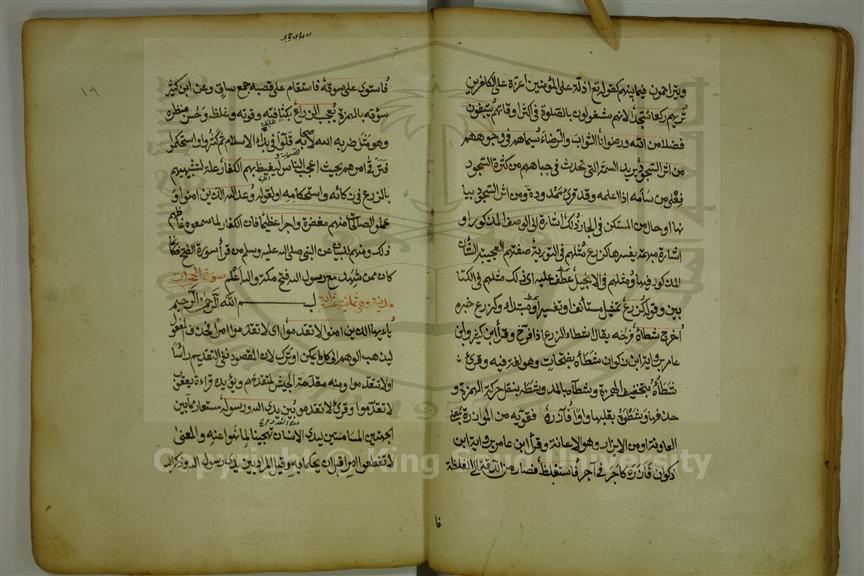 وتراحمون فيما بينهم كقوله تع اذلة على المؤمنين اعزة على الكافرين
تريهم ركعا سجدا لانهم مشغولون بالصلوة في اكثر اوقاتهم يبتغون
فضلا من الله ورضوانا الثواب والرضاء سيماهم في وجوههم
من اثر السجود يريد السمة التي تحدث في جباههم من كثرة السجود
فعلى من سامه اذا اعلمه وقد قرئت ممدودة ومن اثر السجود بيا
نها او حال من المستكن في الجار ذلك اشارة الى الوصف المذكور او
اشارة مبهمة يفسرها كزرع مثلهم في التورية صفتهم العجيبة الشان
المذكورة فيها ومثلهم في الانجيل عطف عليه اي ذلك مثلهم في الكتا
بين وقوله كزرع تمثيل مستأنف او تفسير او مبتداء وكزرع خبره
اخرج شطأه فرخه يقال اشطاء الزرع اذا فرخ وقرأ ابن كثير وابن
عامر برواية ابن ذكوان شطأه بفتحات وهو لغة فيه وقرئ
شطاه بتخفيف الهمزة وشطاءه بالمد وشطه بنقل حركة الهمزة و
حذفها وشطوه بقلبها واوا فآزره فقويه من الموازرة بمعنى
المعاونة او من الايزار وهو الاعانة وقرأ ابن عامر برواية ابن
ذكوان فأزره كأجر في آجر فاستغلظ فصار من الدقة الى الغلظة
فا
١٩
فاستوى على سوقه فاستقام على قصبه جمع ساق وعن ابن كثير
سؤقه بالهمزة يعجب الزراع بكثافته وقوته وغلظه وحسن منظره
وهو مثل ضربه الله لاصحابه قلوا في بدء الاسلام ثم كثروا واستحكموا
فترقى امرهم بحيث اعجب الناس ليغيظ بهم الكفار علة لتشبيههم
بالزرع في زكائه واستحكامه او لقوله وعد الله الذين امنوا و
عملوا الصالحات منهم مغفرة واجرا عظيما فان الكفار لما سمعوه غاظهم
ذلك ومنهم للبيان عن النبي صلى الله عليه وسلم من قرأ سورة الفتح فكانما
كان ممن شهد مع رسول الله فتح مكة والله اعلم سورة الحجرات
مدنية وهي ثمانية عشر اية بسم الله الرحمن الرحيم
يا ءيها الذين امنوا لا تقدموا اي لا تقدموا امرا فحذف المفعول
ليذهب الوهم الى كل ما يمكن او ترك لان المقصود نفي التقديم رأسا
او لا تتقدموا ومنه مقدمة الجيش لمتقدمهم ويؤيده قراءة يعقوب
لا تقدموا وقرئ لا تقدموا بين يدي الله ورسوله مستعار مما بين
الجهتين المسامتتين ليدي الانسان تهجينا لما نهوا عنه والمعنى
لا تقطعوا امرا قبل ان يحكما به وقيل المراد بين يدي رسول الله وذكر الله
Copyright © King Saud University